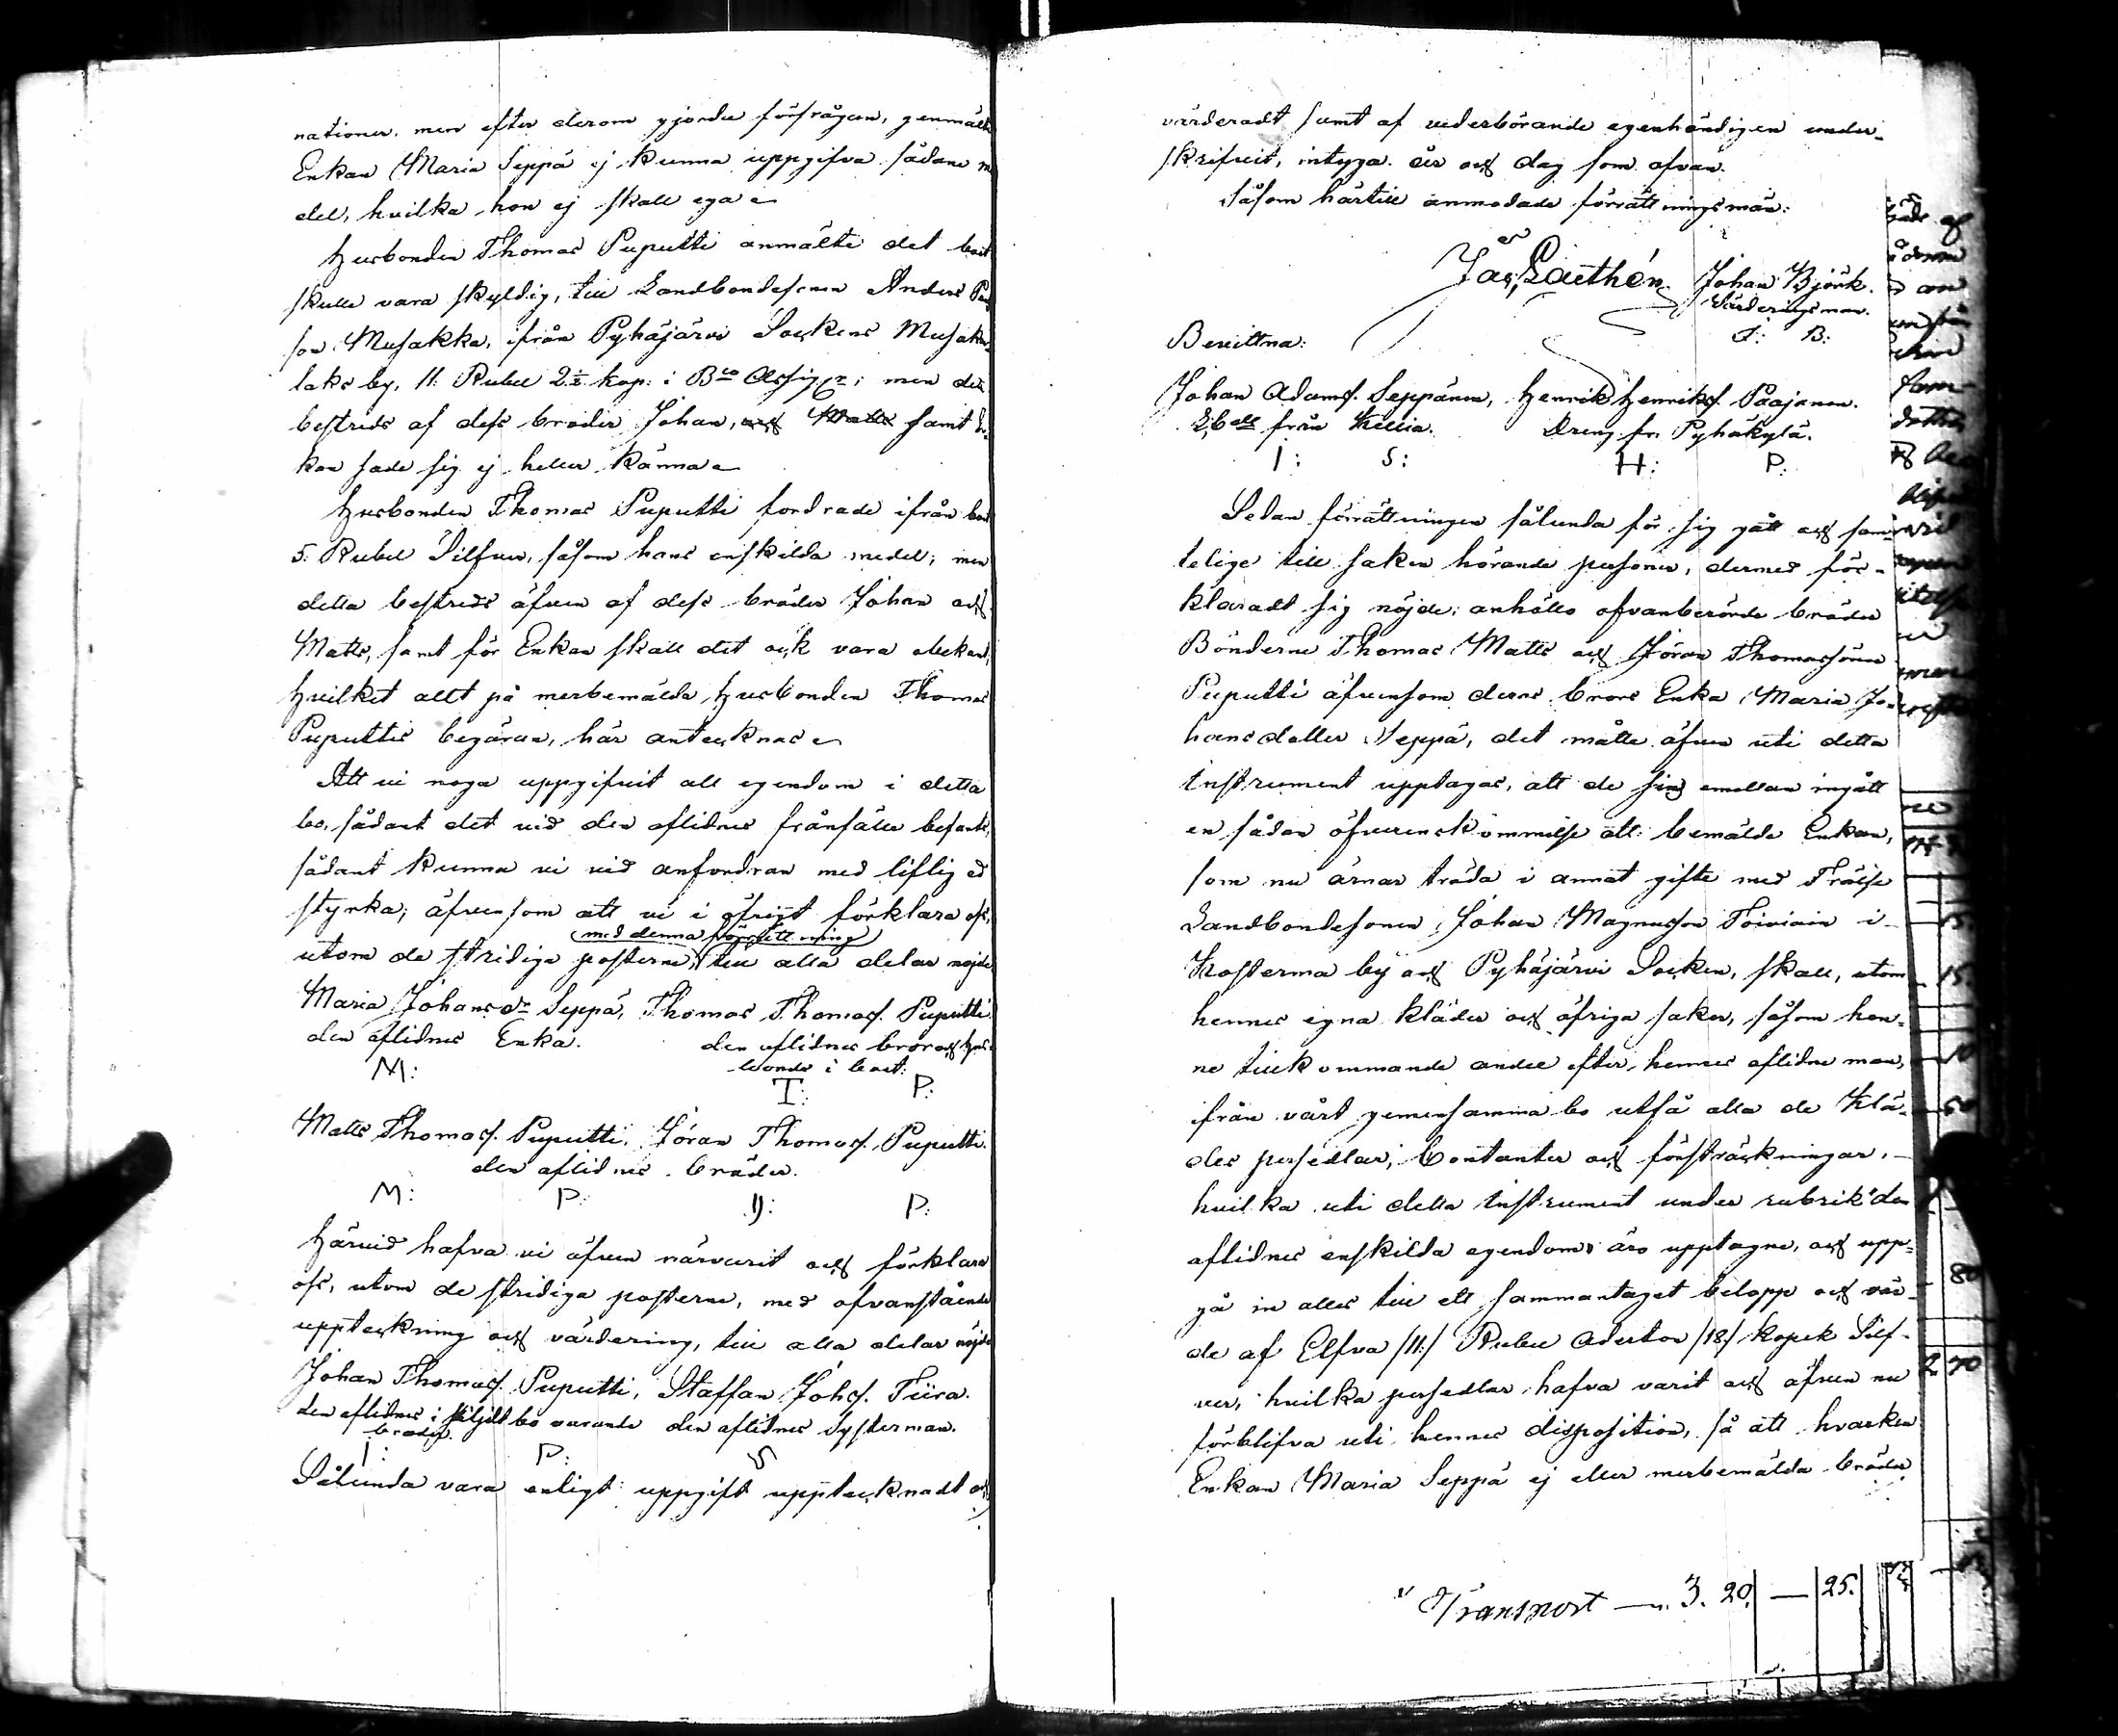 nationer. men efter derom gjorde förfrågan, genmälte
Enkan Maria Seppä ej kunna uppgifva sådane
del, hvilka hon ej skall ega
Husbonden Thomas Puputti anmälte det boet
skulle vara skyldig, till Landbondesonen Anders
son Musakka, ifrån Pyhäjärvi Sockens Musakan
laks by, 11: Rubel 2½ kop: i Bco Assigr; men det
bestreds af dess bröder Johan, och Matts samt En-
kan sade sig ej heller känna
Husbonden Thomas Puputti fordrade ifrån boet
5: Rubel Silfver, såsom hans enskilda medel; men
detta bestreds äfven af dess bröder Johan och
Matts, samt för Enkan skall det ock vara obekant,
hvilket allt på merbemälde husbonden Thomas
Puputtis begäran, här antecknas
Att vi noga uppgifvit all egendom i detta
bo, sådant det vid den aflidnes frånfälle befants,
sådant kunna vi vid anfordran med liflig ed
styrka; äfvensom att vi i öfrigt förklara oss,
(med denna förrättning)
utom de stridiga posterne, till alla delar nöjde
Maria Johansdr Seppä, Thomas Thomass. Puputti
den aflidnes Enka. den aflidnes bror och hus-
bonde i boet:
M: T: P:
Matts Thomass. Puputti, Jöran Thomass. Puputti.
den aflidnes bröder.
M: P: J: P:
Härvid hafva vi äfven närvarit och förklara
oss, utom de stridiga posterne, med ofvanstående
uppteckning och värdering, till alla delar nöjde
Johan Thomass. Puputti, Staffan Johss. Tiira.
den aflidnes i skiljdt bo varande den aflidnes Systerman.
broder.
I: P: S
Sålunda vara enligt uppgift upptecknadt och
värderadt samt af vederbörande egenhändigen under-
skrifvit, intyga. år och dag som ofvan.
Såsom härtill anmodade förrättningsmän:
Jac Laethén. Johan Björk.
Värderingsman.
I: B:
Bevittna:
Johan Adams. Seppänen, Henrik Henrikss. Paajanen.
från Kellia. Dreng fr. Pyhäkylä.
I: S: H: P:
Sedan förrättningen sålunda för sig gått och sam-
telige till saken hörande personer, dermed för-
klaradt sig nöjde; anhöllo ofvanberörde bröder
Bönderne Thomas Matts och Jöran Thomassöner
Puputti äfvensom deras brors Enka Maria Jo-
hansdotter Seppä, det måtte äfven uti detta
instrument upptagas, att de sins emellan ingått
en sådan öfverenskommelse att bemälde Enkan,
som nu ärnar träda i annat gifte med Frälse
Landbondesonen Johan Magnusson Toiviain i
Kosterma by och Pyhäjärvi Socken, skall, utom
hennes egna kläder och öfriga saker, såsom hen-
ne tillkommande andel efter, hennes aflidne man,
ifrån vårt gemensamma bo utfå alla de Klä-
des persedlar, Contanter och försträckningar,
hvilka uti detta instrument under rubrik "den
aflidnes enskilda egendom" äro upptagne, och upp-
gå in alles till ett sammantaget belopp och vär-
de af Elfva /11:/ Rubel aderton /18/ kopek Silf-
ver, hvilka persedlar hafva varit och äfven nu
förblifva uti hennes disposition, så att hvarken
Enkan Maria Seppä ej eller merbemälda bröder
Transport — 3. 20. — 25.